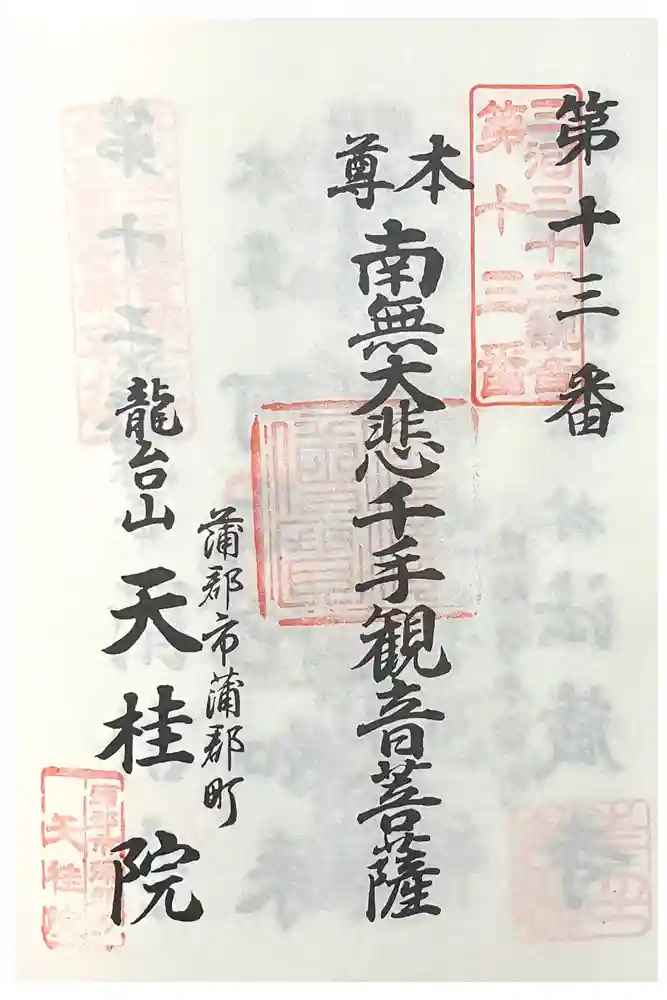 第十三番
三河三十三観音
第十三番
本尊
南無大悲千手観音菩薩
蒲郡市蒲郡町
龍台山 天桂院
天桂院